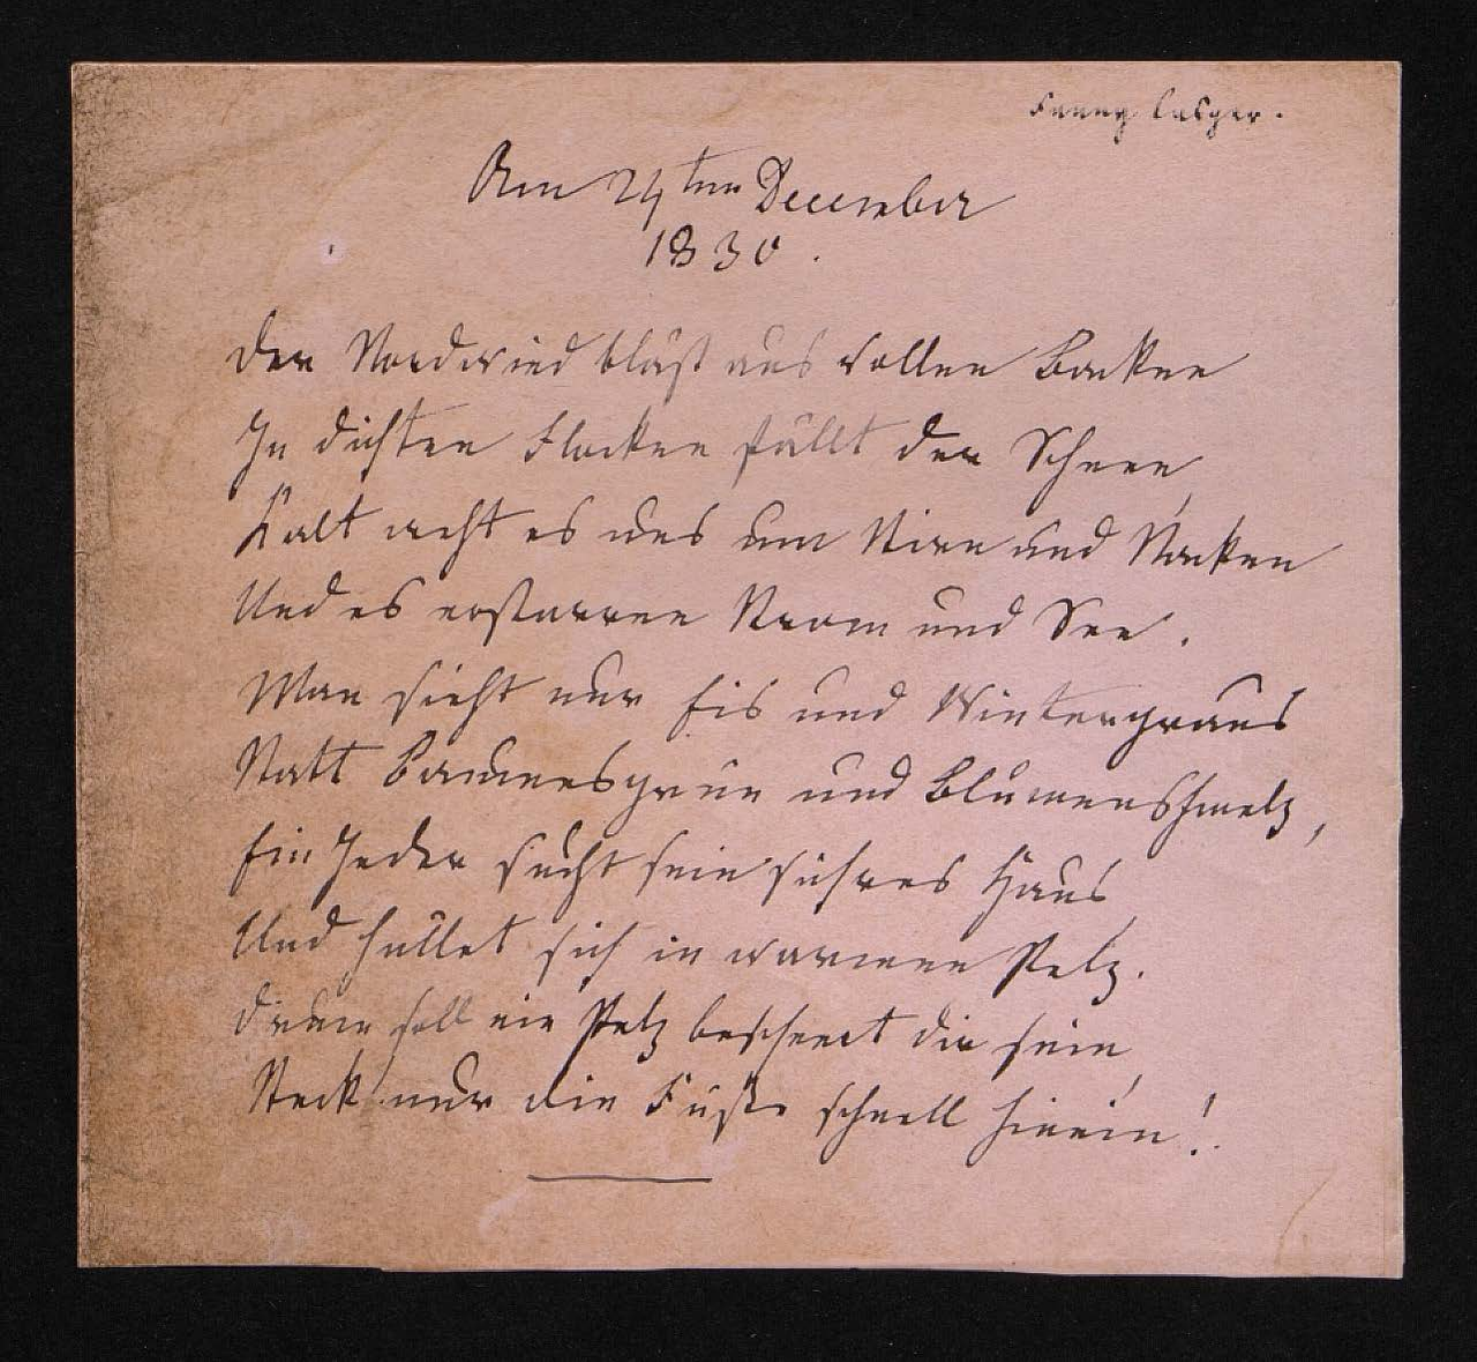 Fanny Casper.
Am 24ten December
1830.
Der Nordwind bläst aus vollen Backen
In dichten Flocken fällt der Schnee,
Kalt weht es uns um Stirn und Nacken
Und es erstarren Strom und See.
Man sieht nur Eis und Wintergraus
Statt Baumesgrün und Blumenschmelz,
Ein Jeder sucht sein sichres Haus
Und hüllet sich in warmen Pelz.
Drum soll ein Pelz bescheert dir sein,
Steck' nur die Füße schnell hinein!